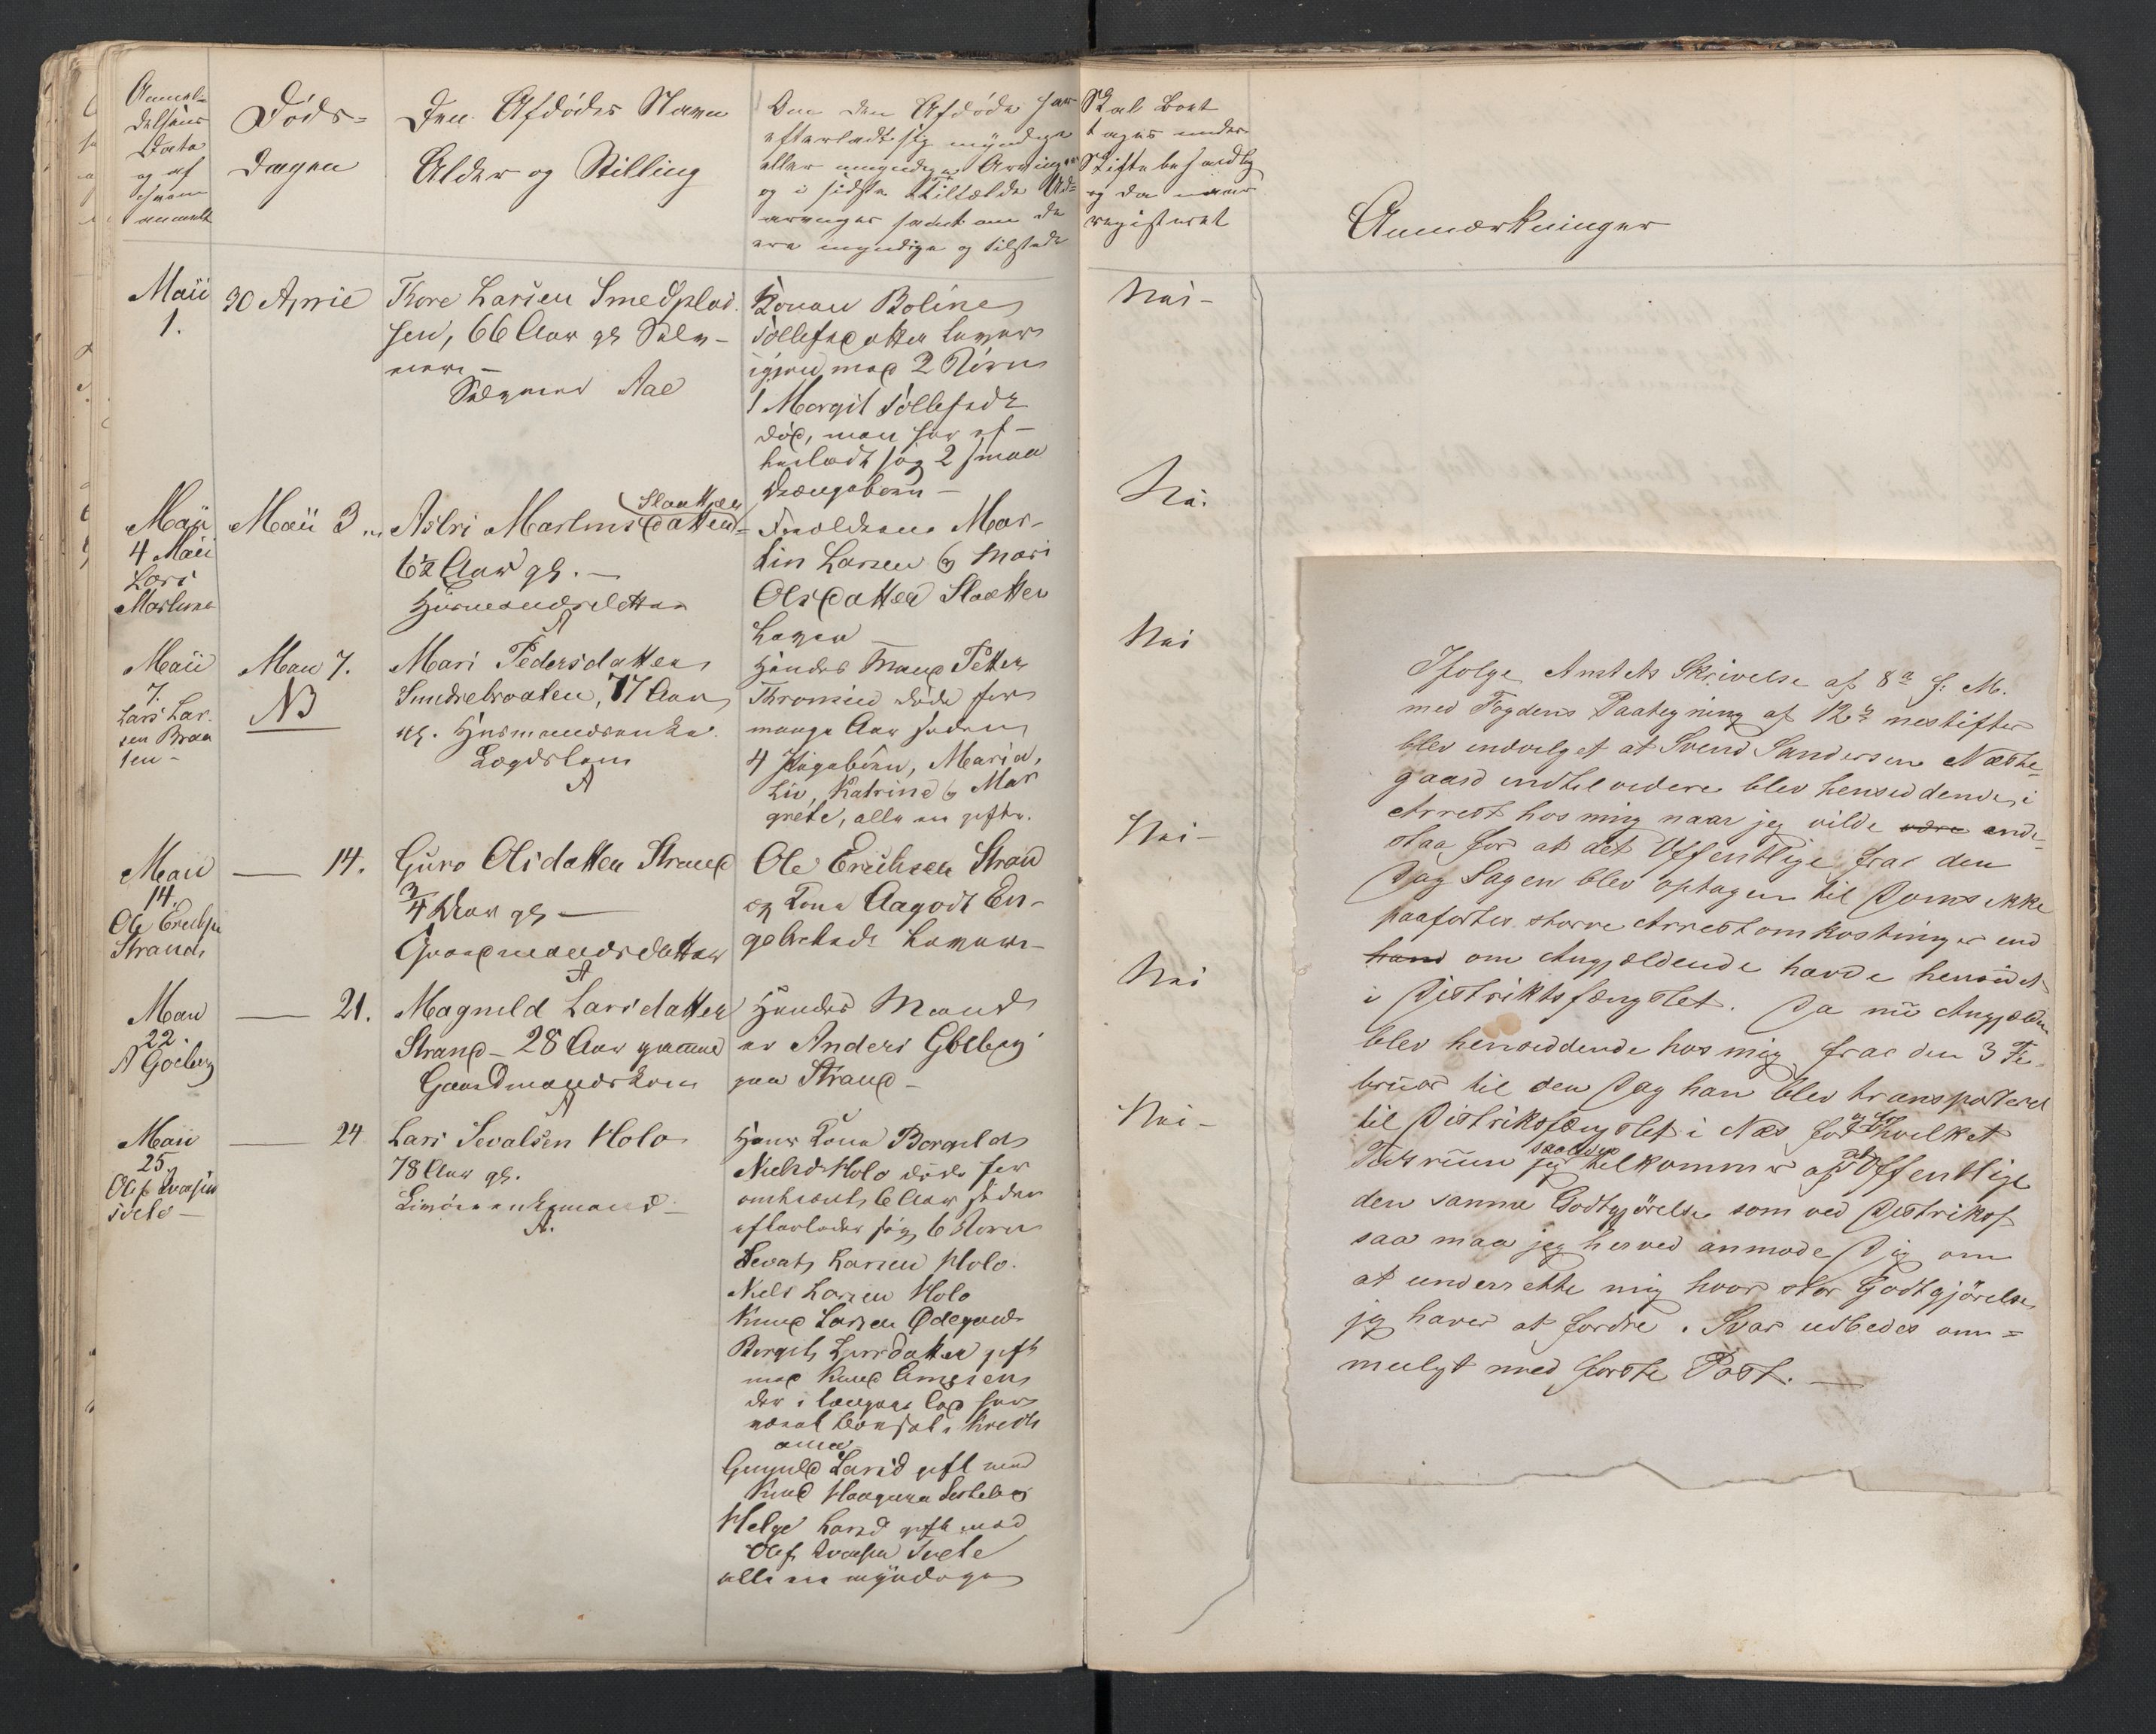 Anmel-
delsens
Dato
og af
hvem
anmeldt
Døds-
dagen
Den Afdødes Navn
Alder og Stilling
Om den Afdøde har
efterladt sig myndige
eller umyndige Arvinger
og i sidste Tilfælde
samt om de
ere myndige og tilstede
Skal Boet
tages under
Skiftebehandling
og da naar
registreret
Anmærkninger
Maii
1.
30 April
Tore Larsen Smedplad-
sen, 66 Aar gl
Aal
Konen Boline
Tollefsdatter lever
igjen med 2 Børn
1 Margit Tollefsdt
død, men har ef-
terladt sig 2 smaa
Drengebørn -
Nei -
Maii
4 Maii
Lars
Martinse
Maii 3
Astri Martinsdatter
Slaatten
6½ Aar gl. -
Huusmandsdatter
A
Forældrene Mar-
tin Larsen & Mari
Olsdatter Slaatten
Lever
Nei.
Maii
7.
Lars Lar-
sen Braa-
ten -
Mai 7.
NB
Mari Pedersdatter
Sundrebraaten, 77 Aar
gl. Huusmandsenke.
Lægdslem
A
Hendes Mand Petter
Thronsen døde for
mange Aar siden
4 Pigebørn, Maria,
Liv, Katrine & Mar
grete, alle ere gifte.
Nei
Mai
14.
Ole Erichse
Strand
— 14.
Guro Olsdatter Strand
¾ Aar gl —
Gaardmandsdatter
A
Ole Erichsen Strand
og Kone Aagodt En-
gebretsdt Lever -
Nei -
Mai
22.
A Golberg
— 21.
Magnild Larsdatter
Strand - 28 Aar gammel
Gaardmandskone
A
Hendes Mand
er Anders Golberg
paa Strand -
Nei
Mai
25.
Olef Iversen
Tvete -
— 24
Lars Sevatsen Holo
78 Aar gl.
A.
Hans Kone Borgild
Nielsd Holo døde for
omtrent 6 Aar siden
efterlader sig 6 Børn
Sevat Larsen Holo.
Niels Larsen Holo
Knud Larsen Ødegaard
Birgit Larsdatter gift
med Knud Amesen
der i længere Tid har
været bosat i Kristi
ania
Gunild Larsd gift med
Knud Haagensen
Helge Larsd gift med
Olef Iversen Tvete
alle ere myndige
Nei -
Ifølge Amtets Skrivelse af 8de f: M.
med Fogdens Paategning af 12te nestefter
blev indvilget at Svend Sandersen Næste-
gaard indtil videre blev hensiddende i
Arrest hos mig naar jeg vilde være inde-
staa for at det Offentlige fra den
Dag Sagen blev optagen til Doms ikke
paaførtes større Arrestomkostninger end
hand om Angjældende havde hensidet
i Distriktsfængslet. Da nu Angjælden
blev hensiddende hos mig fra den 3 Fe-
bruar til den Dag han blev transporteret
til Distriksfængslet i Næs for hvilket
Tidsrum jeg saaledes tilkommer af det Offentlige
den samme Godtgjørelse som ved Distriksf
saa maa jeg herved anmode Dig om
at underrette mig hvor stor Godtgjørelse
jeg haver at fordre. Svar udbedes om-
muligt med første Post. —